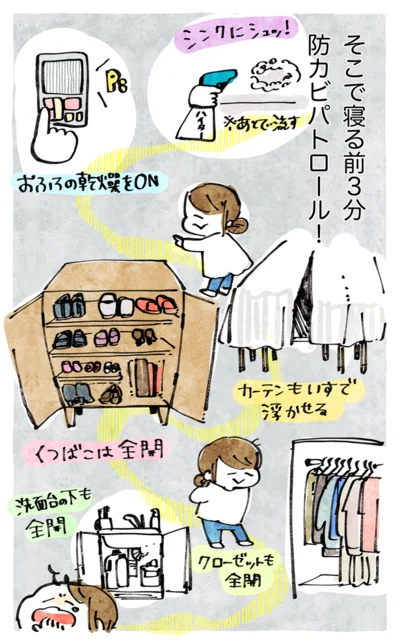 そこで寝る前3分
防カビパトロール!
シンクにシュッ!
ハイター
※あとで流す
Pi
おふろの乾燥をON
カーテンもいすで
浮かせる
くつばこは全開
クローゼットも
全開
洗面台の下も
全開